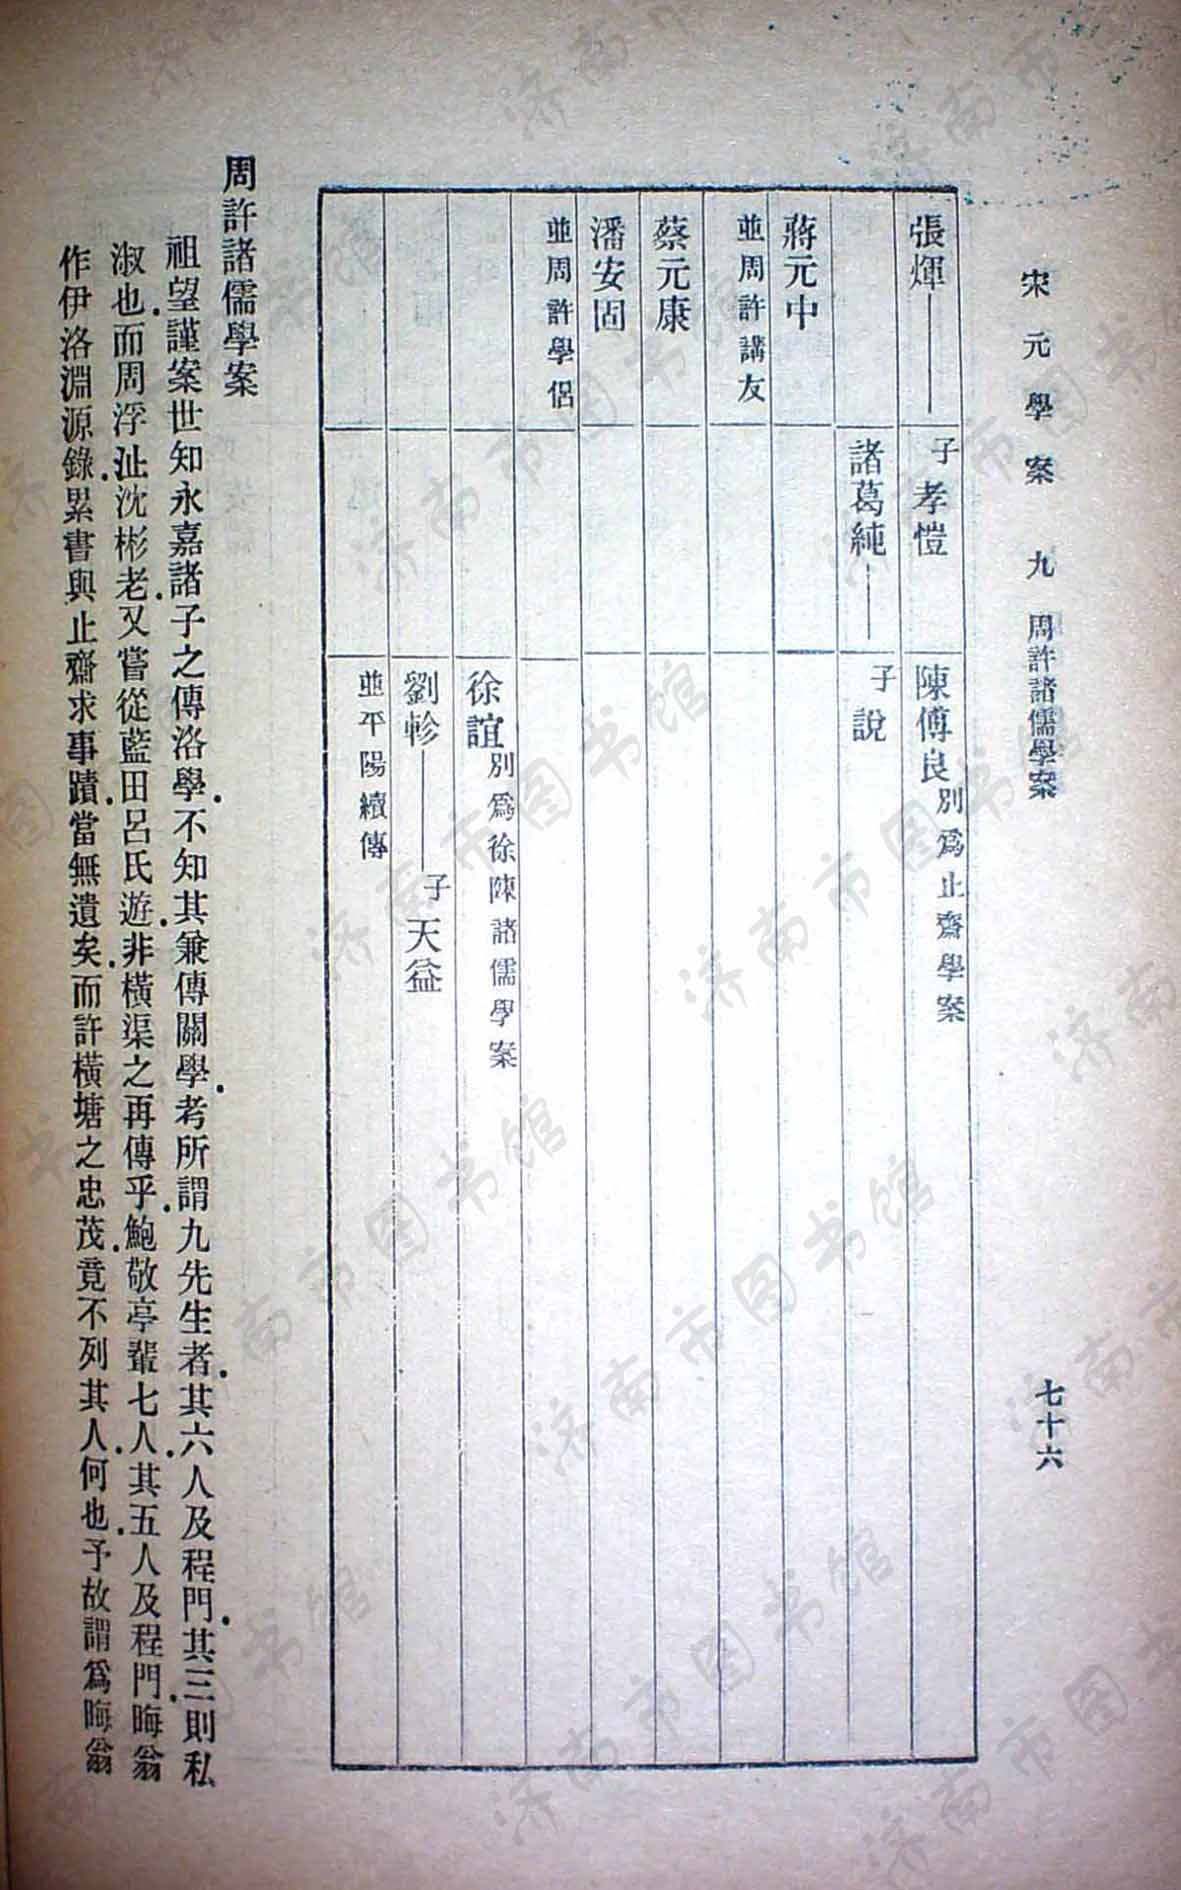 宋元學案 九 周許諸儒學案 七十六
張煇 子孝愷 陳傅良別爲止齋學案
諸葛純 子說
蔣元中
並周許講友
蔡元康
潘安固
並周許學侶
徐誼別爲徐陳諸儒學案
劉軫 子天益
並平陽續傳
周許諸儒學案
祖望謹案世知永嘉諸子之傳洛學.不知其兼傳關學.考所謂九先生者.其六人及程門.其三則私
淑也.而周浮沚沈彬老.又嘗從藍田呂氏遊.非橫渠之再傳乎.鮑敬亭輩七人.其五人及程門.晦翁
作伊洛淵源錄.累書與止齋求事蹟.當無遺矣.而許橫塘之忠茂.竟不列其人.何也.予故謂爲晦翁
济南市图书馆